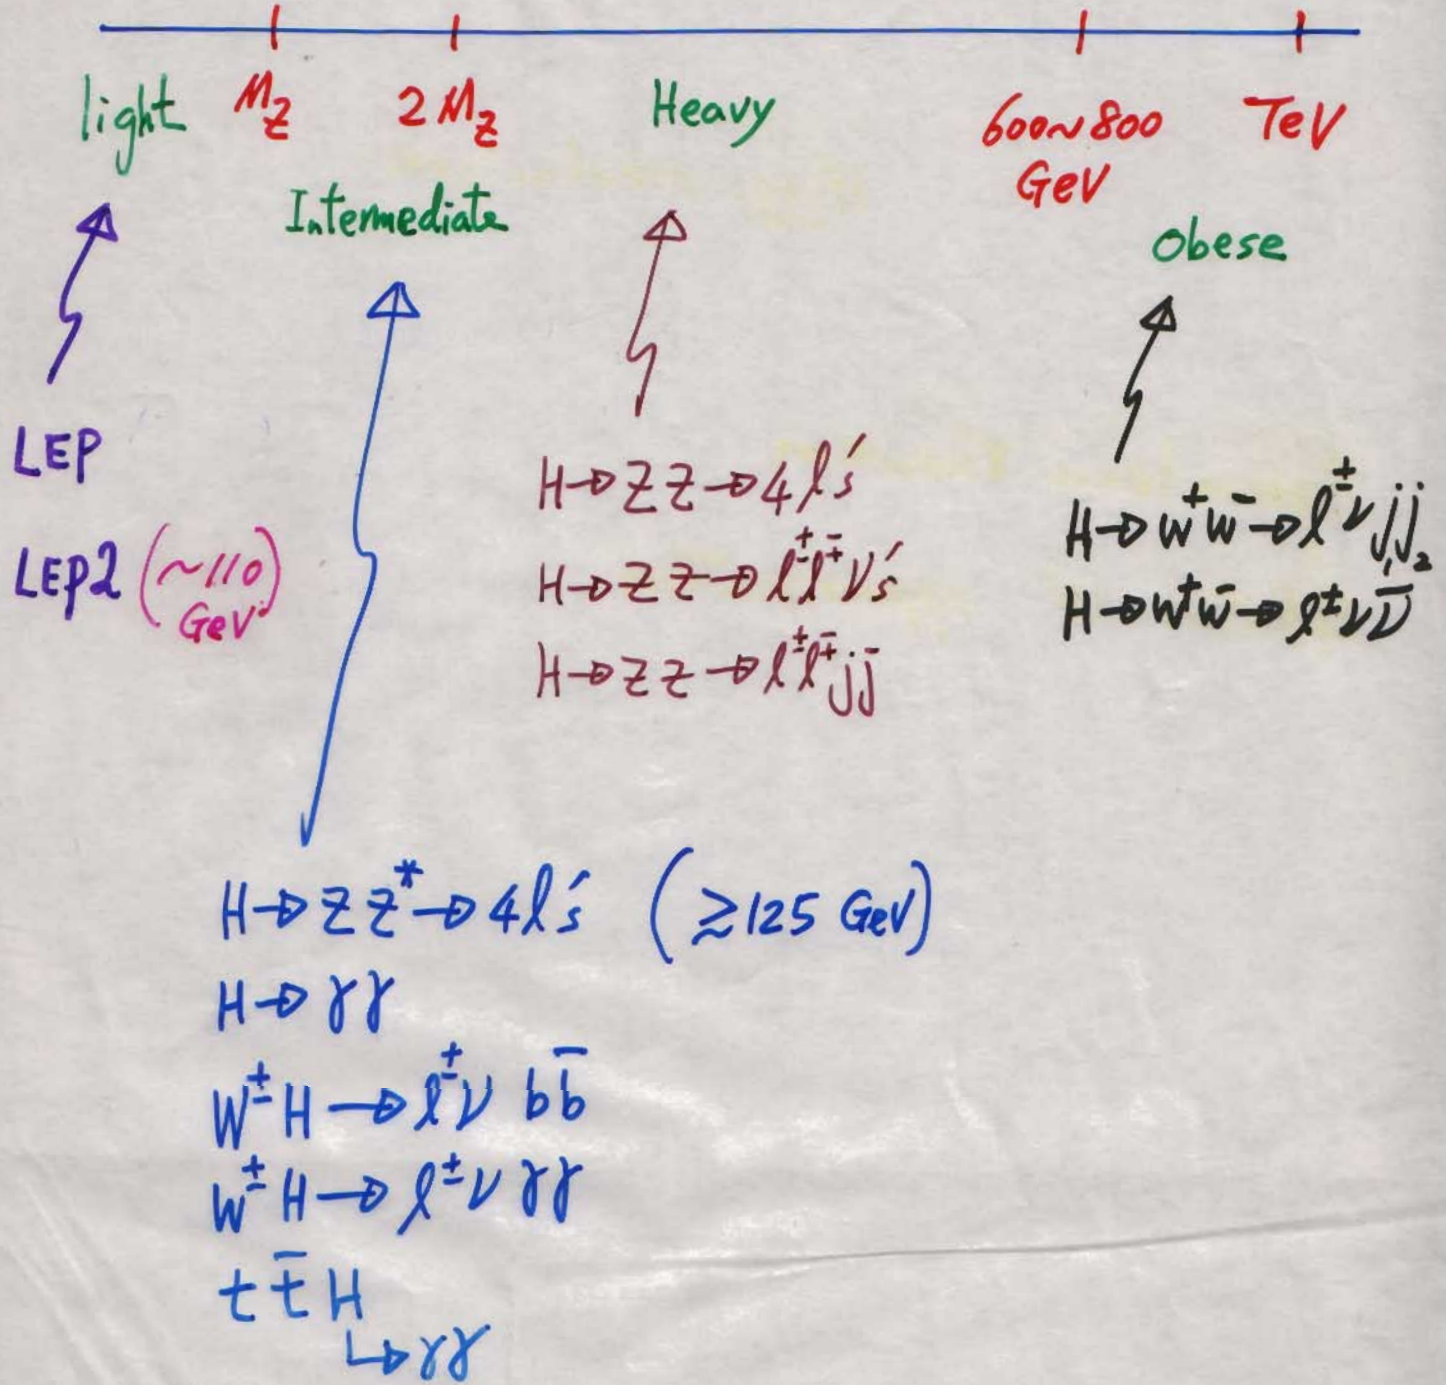 light M_Z 2 M_Z Heavy 600~800 GeV TeV
Intermediate
Obese
LEP
LEP2 (~110 GeV)
H → Z Z → 4 l's
H → Z Z → l^± l^∓ ν's
H → Z Z → l^± l^∓ j j
H → W^+ W^- → l^± ν j_1 j_2
H → W^+ W^- → l^± ν ν̄
H → Z Z^* → 4 l's (≳ 125 GeV)
H → γγ
W^± H → l^± ν b b̄
W^± H → l^± ν γγ
t t̄ H
↳ γγ